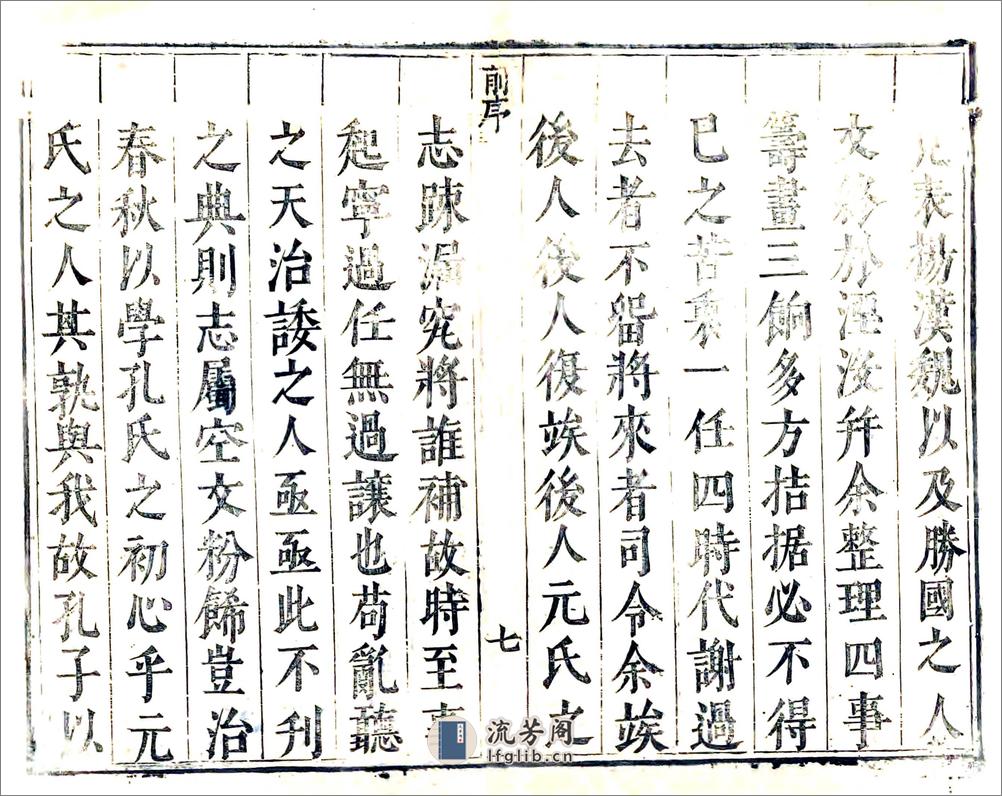 元表揚漢魏以及勝國之人
文務於湮沒幷余整理四事
籌畫三餉多方拮据必不得
已之苦衷一任四時代謝過
去者不畱將來者司令余竢
後人後人復竢後人元氏之
前序
七
志踈漏究將誰補故時至事
起寧過任無過讓也苟亂聽
之天治諉之人亟亟此不刋
之典則志屬空文粉餙豈治
春秋以學孔氏之初心乎元
氏之人其孰與我故孔子以
流芳阁
lfglib.cn